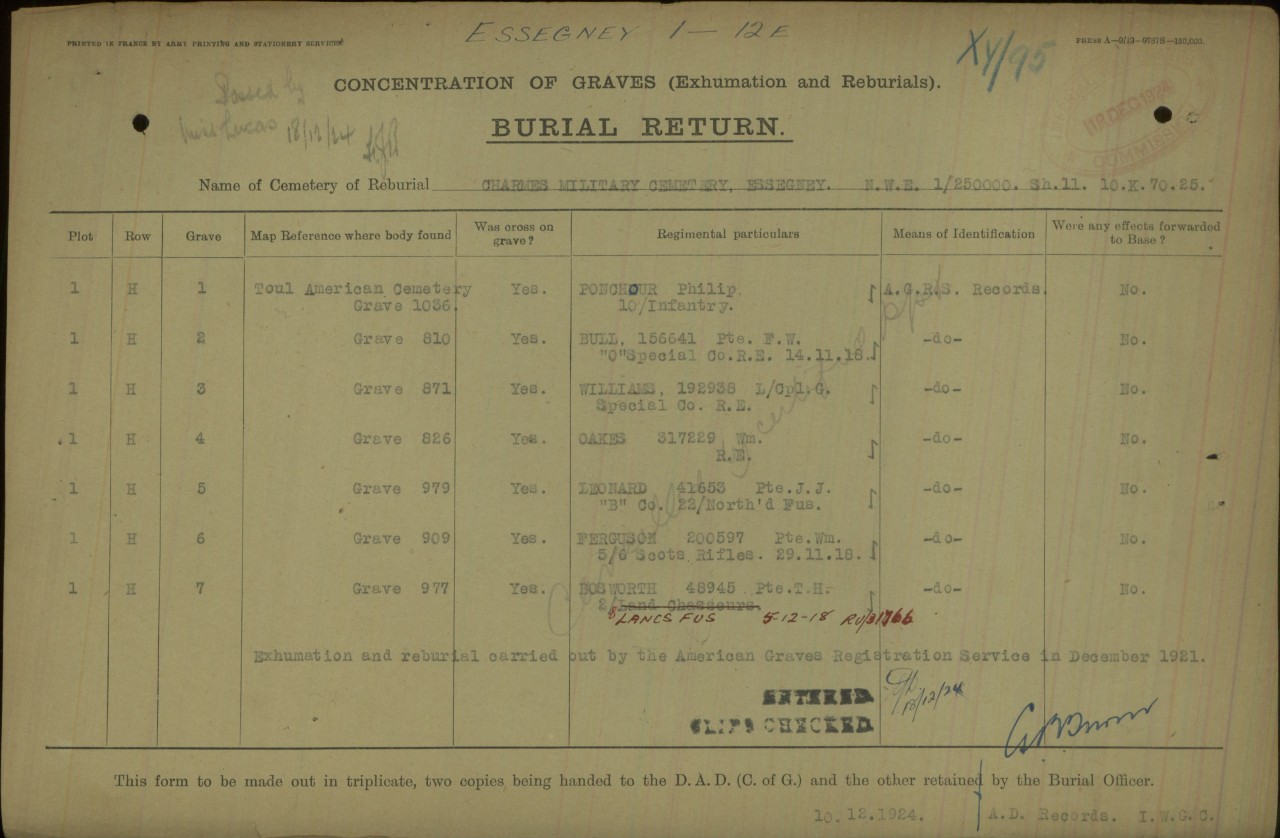 ESSEGNEY 1 — 12E
PRINTED IN FRANCE BY ARMY PRINTING AND STATIONERY SERVICES
PRESS A—9/19—9787S—150,000.
XY/95
CONCENTRATION OF GRAVES (Exhumation and Reburials).
Passed by
Miss Lucas 18/12/24
18 DEC 1924
COMMISSION
BURIAL RETURN.
Name of Cemetery of Reburial CHARMES MILITARY CEMETERY, ESSEGNEY. N.W.E. 1/250000. Sh.11. 10.K.70.25.
Plot Row Grave Map Reference where body found Was cross on grave? Regimental particulars Means of Identification Were any effects forwarded to Base?
1 H 1 Toul American Cemetery Yes. PONCHOUR Philip. A.G.R.S. Records. No.
Grave 1036. 10/Infantry.
1 H 2 Grave 810 Yes. BULL, 156641 Pte. F.W. -do- No.
"O"Special Co.R.E. 14.11.18.
1 H 3 Grave 871 Yes. WILLIAMS, 192938 L/Cpl.G. -do- No.
Special Co. R.E.
1 H 4 Grave 826 Yes. OAKES 317229 Wm. -do- No.
R.E.
1 H 5 Grave 979 Yes. LEONARD 41653 Pte.J.J. -do- No.
"B" Co. 22/North'd Fus.
1 H 6 Grave 909 Yes. FERGUSON 200597 Pte.Wm. -do- No.
5/6 Scots Rifles. 29.11.18.
1 H 7 Grave 977 Yes. BOSWORTH 48945 Pte.T.H. -do- No.
2/Land Chasseurs.
LANCS FUS 5-12-18
Exhumation and reburial carried out by the American Graves Registration Service in December 1921.
ENTERED
18/12/24
SLIPS CHECKED
This form to be made out in triplicate, two copies being handed to the D.A.D. (C. of G.) and the other retained by the Burial Officer.
10.12.1924. A.D. Records. I.W.G.C.